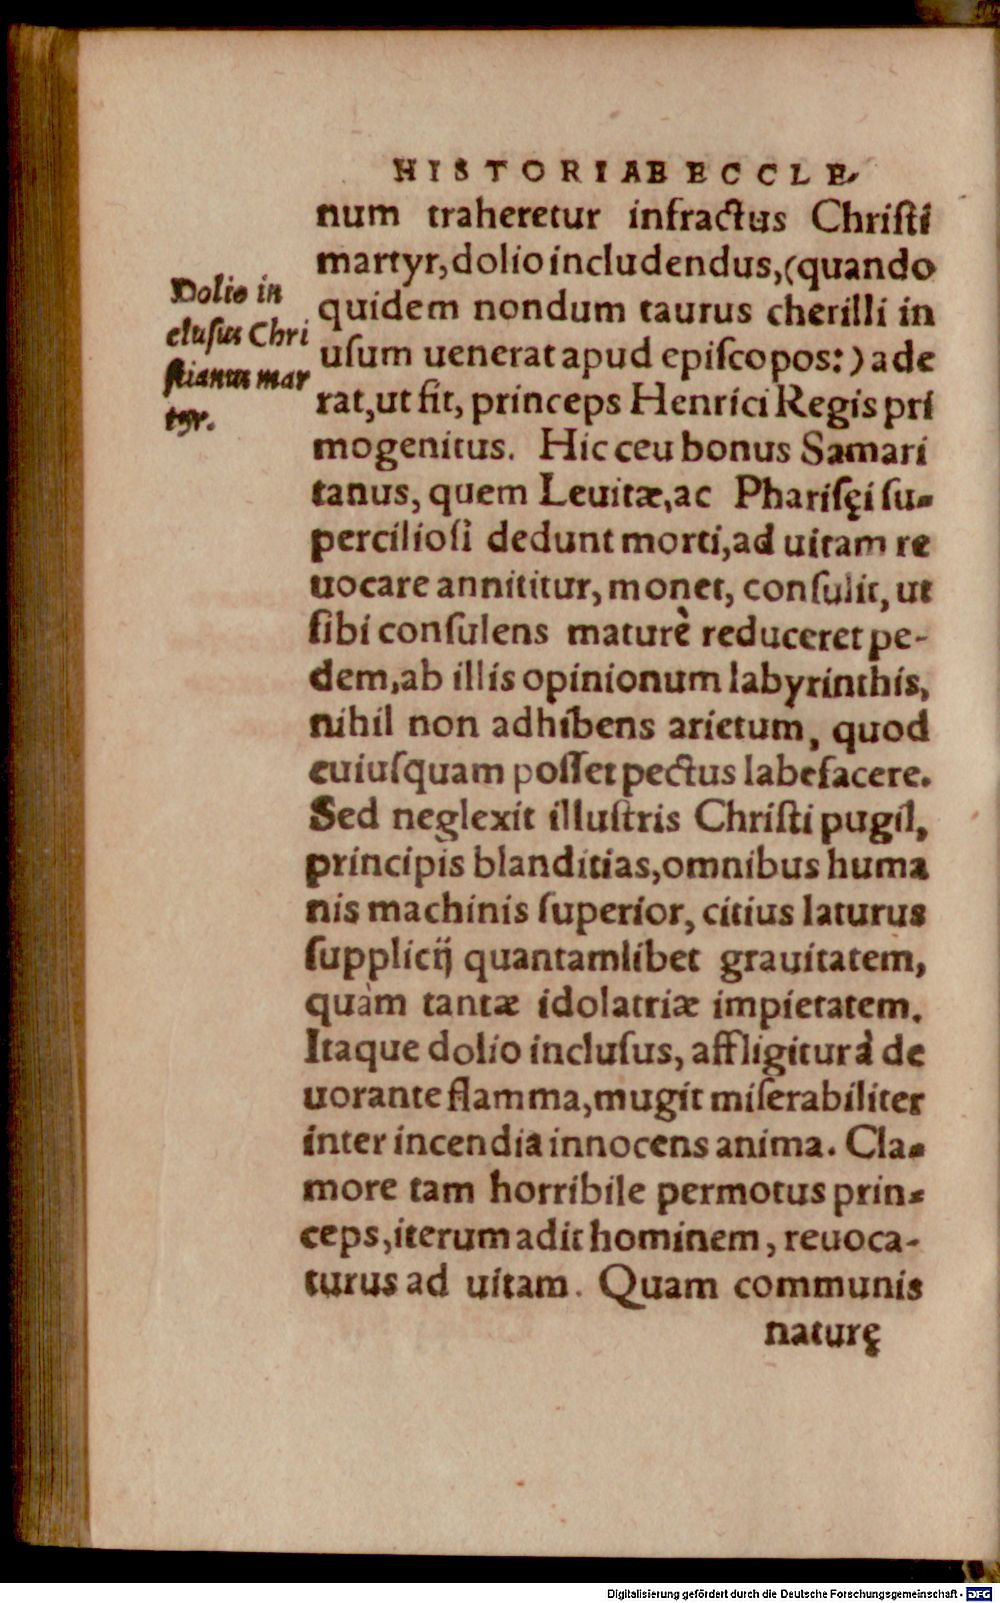 HISTORIAE ECCLE-
num traheretur infractus Christi
martyr, dolio includendus, (quando
quidem nondum taurus cherilli in
uſum uenerat apud epiſcopos:) ade
rat, ut fit, princeps Henrici Regis pri
mogenitus. Hic ceu bonus Samari
tanus, quem Leuitæ, ac Phariſęi ſu-
percilioſi dedunt morti, ad uitam re
uocare annititur, monet, conſulit, ut
ſibi conſulens maturè reduceret pe-
dem, ab illis opinionum labyrinthis,
nihil non adhibens arietum, quod
cuiuſquam poſſet pectus labefacere.
Sed neglexit illuſtris Chriſti pugil,
principis blanditias, omnibus huma
nis machinis ſuperior, citius laturus
ſupplicij quantamlibet grauitatem,
quàm tantæ idolatriæ impietatem.
Itaque dolio incluſus, affligitur à de
uorante flamma, mugit miſerabiliter
inter incendia innocens anima. Cla-
more tam horribile permotus prin-
ceps, iterum adit hominem, reuoca-
turus ad uitam. Quam communis
naturę
Dolio in
cluſus Chri
ſtianus mar
tyr.
Digitalisierung gefördert durch die Deutsche Forschungsgemeinschaft - DFG